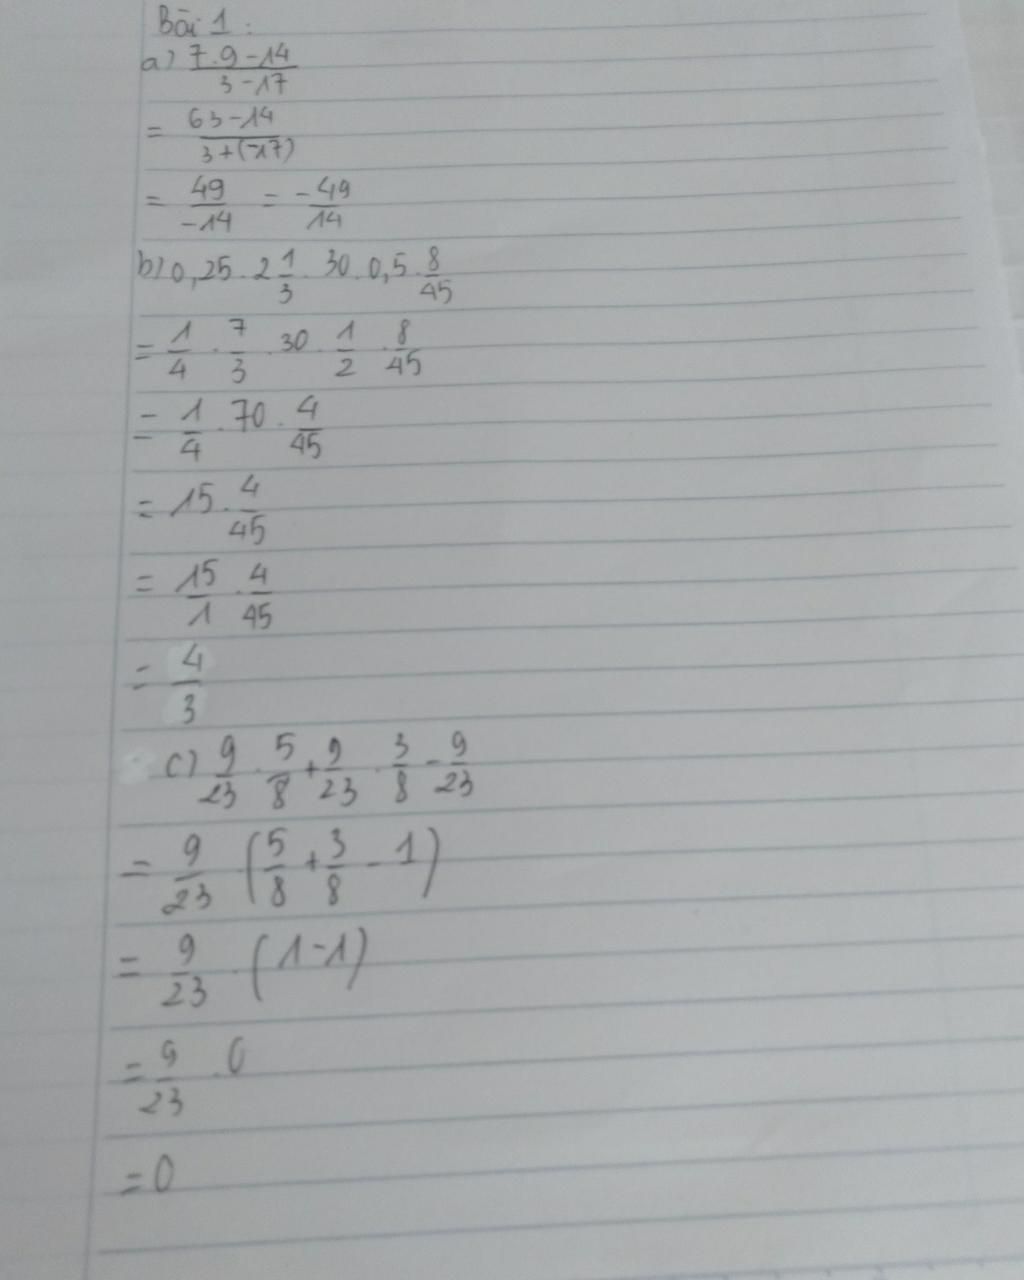 Bài 1:
a) \frac{7.9-14}{3-17}
= \frac{63-14}{3+(-17)}
= \frac{49}{-14} = \frac{-49}{14}
b) 0,25 . 2\frac{1}{3} . 30 . 0,5 . \frac{8}{45}
= \frac{1}{4} . \frac{7}{3} . 30 . \frac{1}{2} . \frac{8}{45}
= \frac{1}{4} . 70 . \frac{4}{45}
= 15 . \frac{4}{45}
= \frac{15}{1} . \frac{4}{45}
= \frac{4}{3}
c) \frac{9}{23} . \frac{5}{8} + \frac{9}{23} . \frac{3}{8} - \frac{9}{23}
= \frac{9}{23} . (\frac{5}{8} + \frac{3}{8} - 1)
= \frac{9}{23} . (1-1)
= \frac{9}{23} . 0
= 0